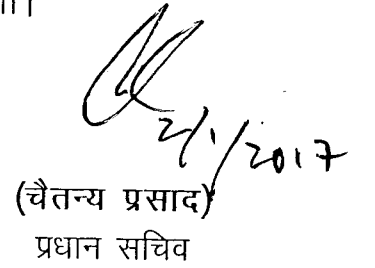 2/1/2017
(चैतन्य प्रसाद)
प्रधान सचिव